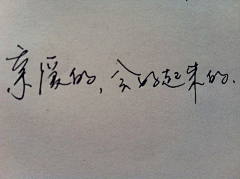 亲爱的，会好起来的.